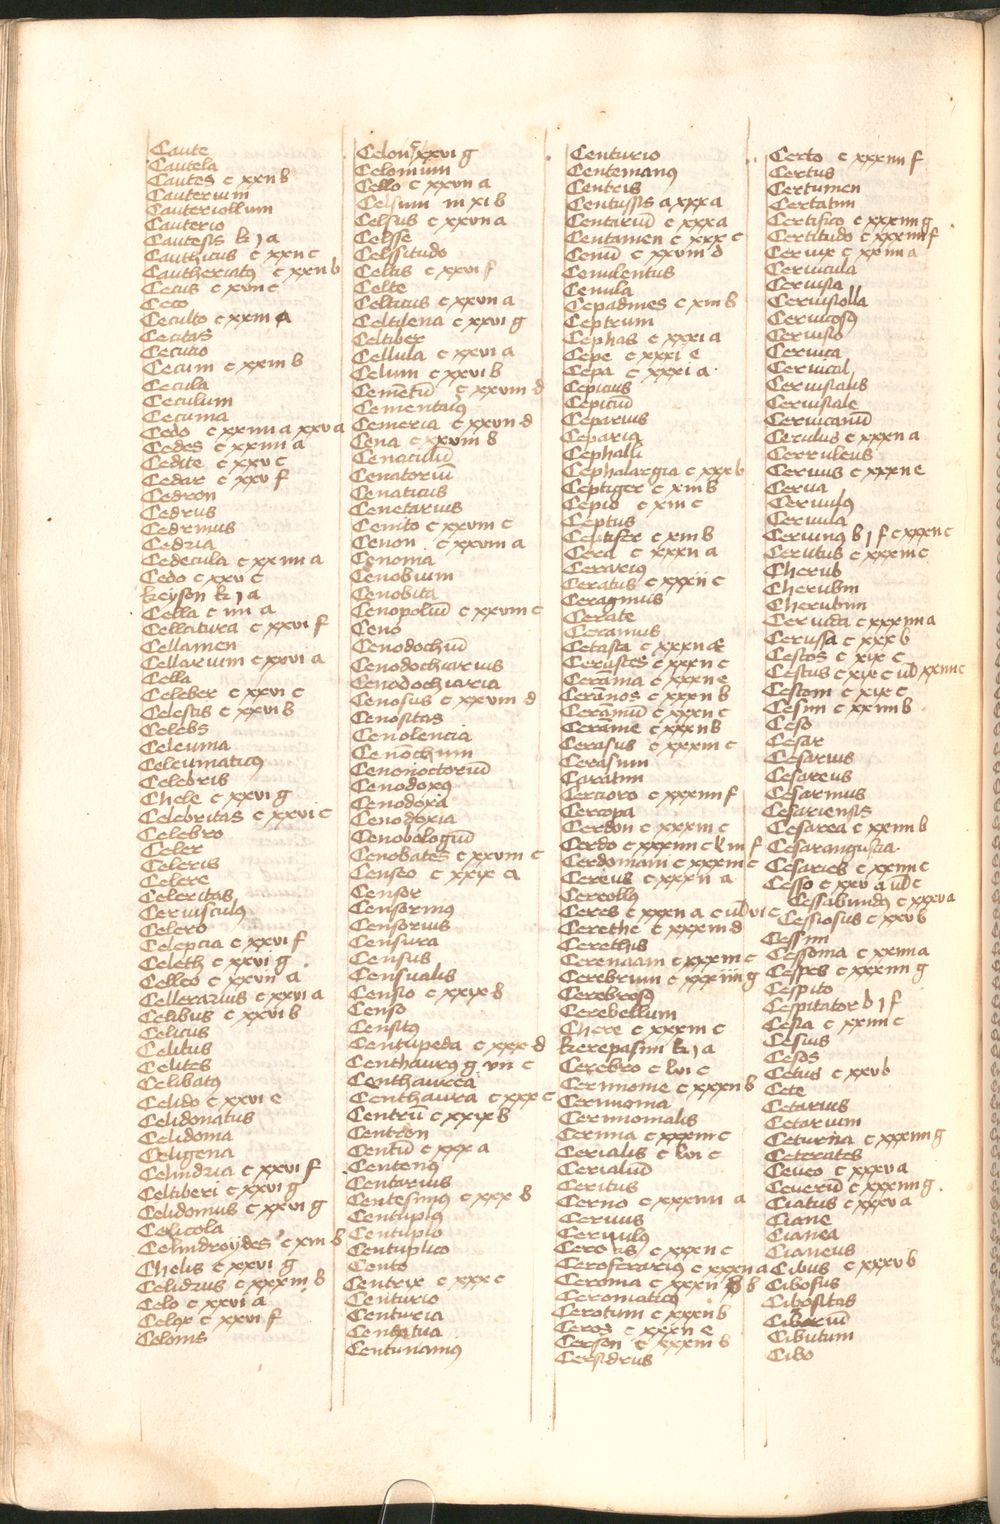 Caute
Cautela
Cautes c xxii b
Cauterium
Cauteriollum
Cauterio
Cautesis k j a
Cauthicus c xxii c
Cautheriatꝰ c xxii b
Cecus c xvii c
Ceco
Ceculto c xxiii a
Cecitas
Cecutio
Cecum c xxiii b
Cecula
Ceculum
Cecuma
Cedo c xxiiii a xxv a
Cedes c xxiiii a
Cedite c xxv c
Cedar c xxv f
Cedron
Cedrus
Cedrinus
Cedria
Cedecula c xxiiii a
Cedo c xxv c
keyson k j a
Cella c iiii a
Cellatura c xxvi f
Cellamen
Cellarium c xxvi a
Cella
Celeber c xxvi c
Celestis c xxvi b
Celebs
Celeuma
Celeumaticꝰ
Celebris
Chele c xxvi g
Celebritas c xxvi c
Celebro
Celer
Celeris
Celere
Celeritas
Ceriusculꝰ
Celero
Celepcia c xxvi f
Celeth c xxvi g
Celleo c xxvii a
Cellerarius c xxvi a
Celibus c xxvi b
Celicus
Celitus
Celites
Celibatꝰ
Celido c xxvi e
Celidonatus
Celidonia
Celigena
Celindria c xxvi f
Celtiberi c xxvi g
Celidonius c xxvi g
Celicola
Celindroydes c xiii b
Chelis c xxvi g
Celidrus c xxxiii b
Celo c xxvi a
Celox c xxvi f
Celonis
Celon xxvi g
Celonium
Cello c xxvii a
Celsium iii xi b
Celsus c xxvii a
Celsse
Celssitudo
Celtis c xxvi f
Celte
Celticus c xxvii a
Celtilena c xxvi g
Celtiber
Cellula c xxvi a
Celum c xxvi b
Cemetiū c xxviii d
Cementaꝰ
Cemeria c xxvii d
Cena c xxviii b
Cenaculū
Cenatoriū
Cenaticus
Cenetarius
Cenito c xxviii c
Cenon c xxviii a
Cenoma
Cenobium
Cenobita
Cenopoliū c xxviii c
Ceno
Cenodochiū
Cenodochiarius
Cenodochiaria
Cenosus c xxviii d
Cenositas
Cenolencia
Cenōchium
Cenonoctoriū
Cenodoxꝰ
Cenodoxa
Cenodoxia
Cenobologiū
Cenobates c xxviii c
Censeo c xxix a
Censor
Censorinꝰ
Censorius
Censura
Census
Censualis
Censio c xxix b
Censo
Censitꝰ
Centupeda c xxx d
Centhaurꝰ g vii c
Centhaurea
Centhaura c xxx c
Centrū c xxix b
Centron
Centū c xxx a
Centenꝰ
Centarius
Centesimꝰ c xxx b
Centuplꝰ
Centuplo
Centuplico
Cento
Centrix c xxx c
Centurio
Centuria
Centatua
Centunamꝰ
Centurio
Centemanꝰ
Centris
Centussis a xxx a
Centariū c xxx a
Centamen c xxx c
Cenū c xxviii d
Cenulentus
Cenula
Cepadines c xiii b
Ceptrum
Cephas c xxxi a
Cepe c xxxi e
Cepa c xxxi a
Cepicius
Cepitiū
Ceparius
Ceparia
Cephali
Cephalargia c xxx b
Ceptiger c xiii b
Cepio c xiii c
Ceptus
Ceptifer c xiii b
Cera c xxxii a
Cerarius
Ceratus c xxxii c
Ceragmus
Cerate
Ceramus
Cetasta c xxxii
Cerastes c xxxii c
Cerania c xxxii e
Cerānos c xxxii b
Cerāmiū c xxxii c
Cerame c xxxii b
Cerasus c xxxiii c
Cerasium
Ceratim
Certioro c xxxiiii f
Cercopa
Cerdon c xxxiii c
Cerdo c xxxiiii c k iii f
Cerdomam c xxxiii c
Cereus c xxxii a
Cereollꝰ
Ceres c xxxii a c ul vi c
Cerethe c xxxiii d
Cerethis
Cerenaam c xxxiii c
Cerebrum c xxxiiii g
Cerebrosꝰ
Cerebellum
Chere c xxxiii c
kerepasim k j a
Cerebro c lvi c
Cerimonie c xxxii b
Cerimonia
Cerimonialis
Cerinia c xxxiii c
Cerialis c lvi c
Cerialiū
Ceritus
Cerno c xxxiiii a
Cernuus
Cernulꝰ
Ceroeus c xxxii c
Ceroferarius c xxxii a
Ceroma c xxxii b b
Ceromaticꝰ
Cerotum c xxxii b
Ceros c xxxii e
Cerson c xxxiii b
Cersidrus
Certo c xxxiiii f
Certus
Certumen
Certatim
Certifico c xxxiiii g
Certitudo c xxxiiii f
Ceruix c xxiiii a
Ceruicula
Ceruisia
Ceruisiolla
Ceruicosꝰ
Ceruisio
Ceruica
Ceruical
Ceruisialis
Ceruisiale
Ceruicaniū
Cerulus c xxxii a
Cerruleus
Ceruus c xxxii e
Cerua
Ceruulꝰ
Ceruula
Ceruinꝰ b j f c xxxii c
Cerutus c xxxiii c
Cherub
Cherubin
Cherubim
Ceructa c xxxiiii a
Cerussa c xxx b
Cestos c xix c
Cestus c xix c ul xxiiii c
Cestom c xix c
Cesim c xxiiii b
Ceso
Cesar
Cesarius
Cesareus
Cesarinus
Cesariensis
Cesarea c xxiiii b
Cesarangusta
Cesaries c xxiiii c
Cesso c xxv a ul c
Cessabundꝰ c xxxv a
Cessiosus c xxv b
Cessim
Cessoma c xxiiii a
Cespes c xxxiiii g
Cespito
Cespitator b j f
Cesia c xxiiii c
Cesius
Cesos
Cetus c xxv b
Cete
Cetarius
Cetarium
Ceturna c xxxiiii g
Ceterates
Ceueo c xxxv a
Ceueriū c xxxiiii g
Ciatus c xxxv a
Ciane
Cianea
Cianeus
Cibus c xxxv b
Cibosus
Cibositas
Cibariū
Cibutum
Cibo